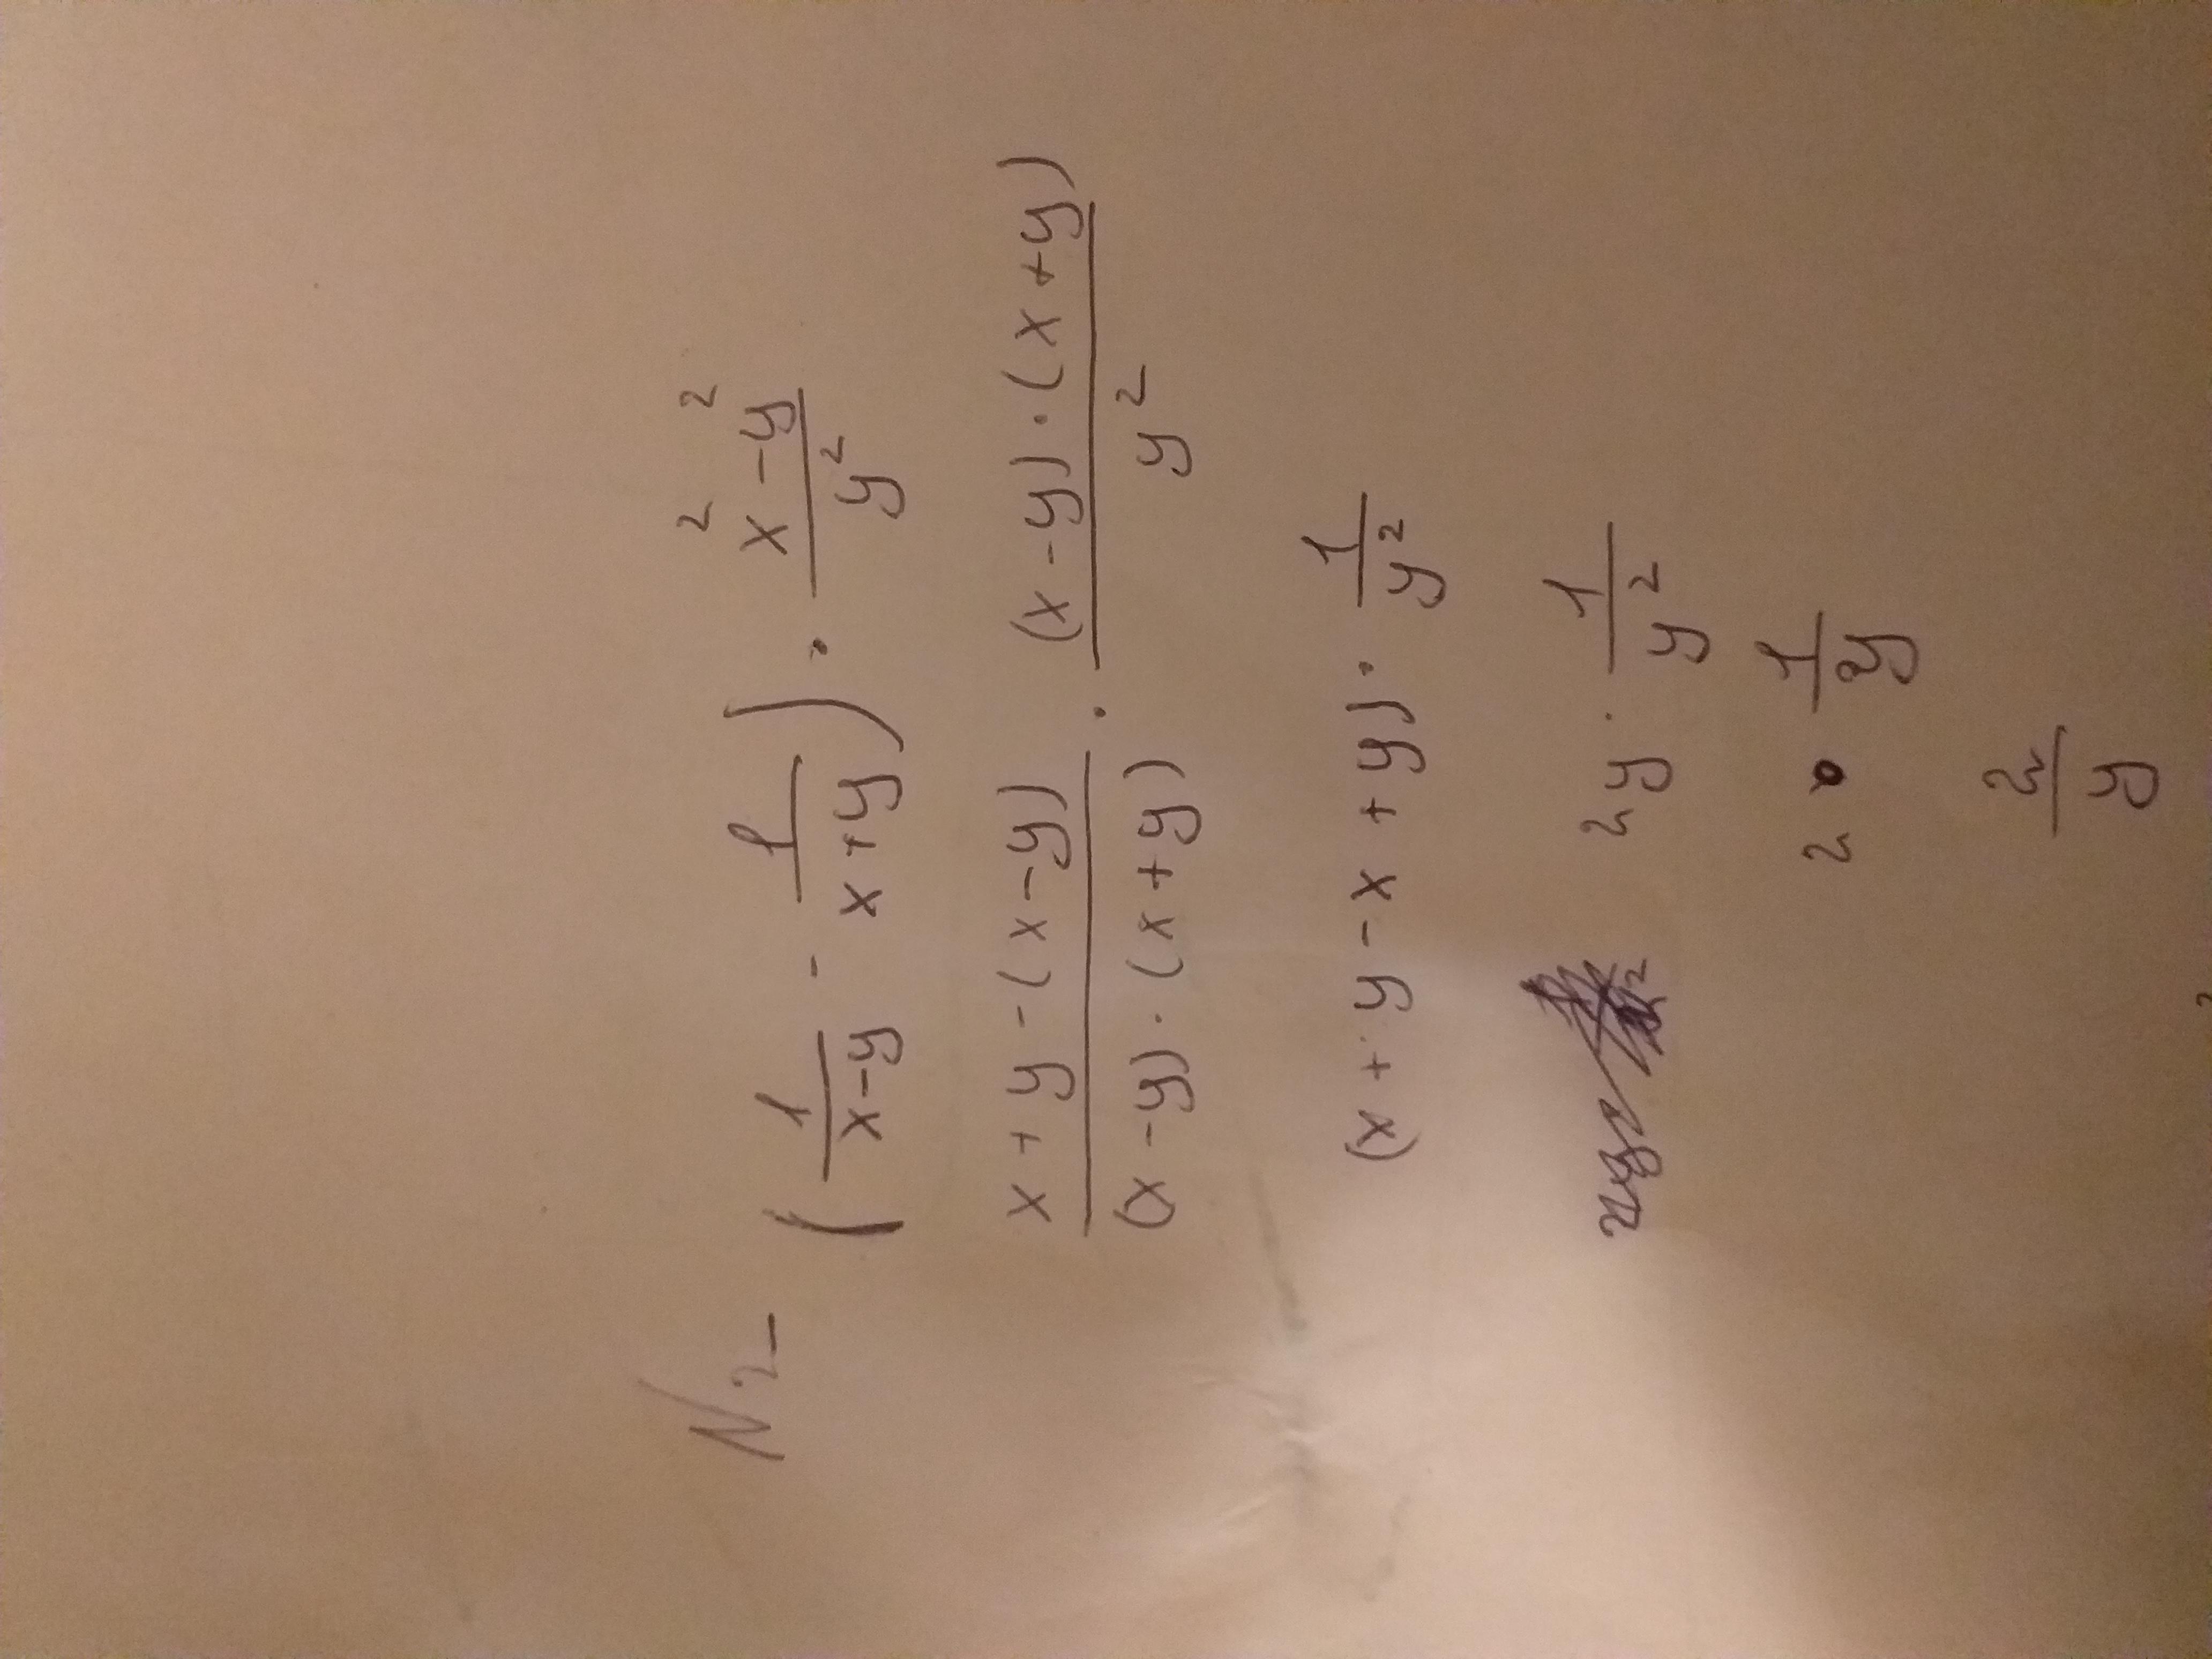 N2
(1/(x-y) - 1/(x+y)) · (x²-y²)/y²
(x+y-(x-y))/((x-y)·(x+y)) · ((x-y)·(x+y))/y²
(x+y-x+y) · 1/y²
2y · 1/y²
2 · 1/y
2/y